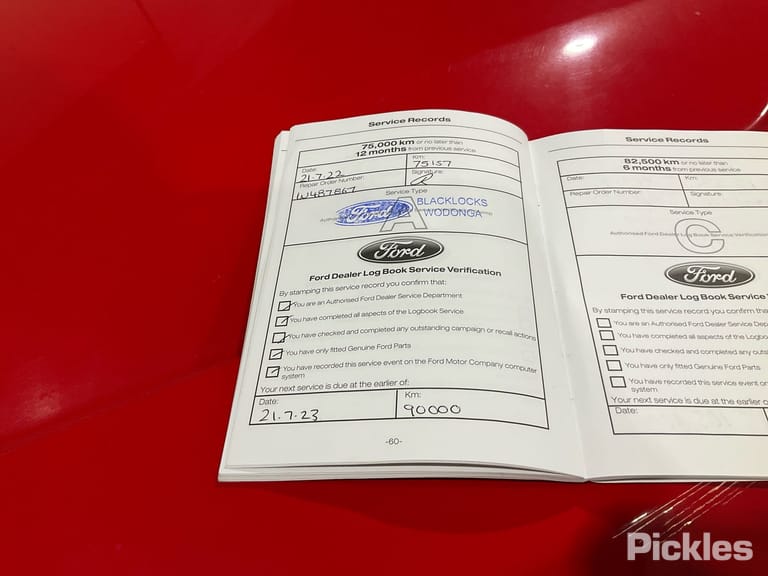 Service Records
75,000 km or no later than
12 months from previous service
Date:
21.7.22
Km:
75157
Repair Order Number:
Signature:
Service Type
A
Ford
BLACKLOCKS
WODONGA
Ford
Ford Dealer Log Book Service Verification
By stamping this service record you confirm that:
You are an Authorised Ford Dealer Service Department
You have completed all aspects of the Logbook Service
You have checked and completed any outstanding campaign or recall actions
You have only fitted Genuine Ford Parts
You have recorded this service event on the Ford Motor Company computer
system
Your next service is due at the earlier of:
Date:
21.7.23
Km:
90000
-60-
Service Records
82,500 km or no later than
6 months from previous service
Date:
Km:
Repair Order Number:
Signature:
Service Type
C
Authorised Ford Dealer Log Book Service Verification
Ford
Ford Dealer Log Book Service
By stamping this service record you confirm that
You are an Authorised Ford Dealer Service
You have completed all aspects of the
You have checked and completed any
You have only fitted Genuine Ford Parts
You have recorded this service event on
system
Your next service is due at the earlier
Date:
Pickles